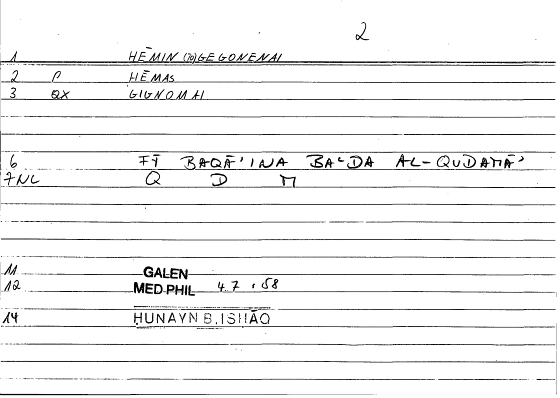 2
1 HĒMIN (TO) GEGONENAI
2 P HĒMAS
3 QX GIGNOMAI
6 FĪ BAQĀ'INA BAʿDA AL-QUDAMĀ'
7NL Q D M
11 GALEN
12 MED PHIL 4.7 : 58
14 ḤUNAYN B. ISḤĀQ